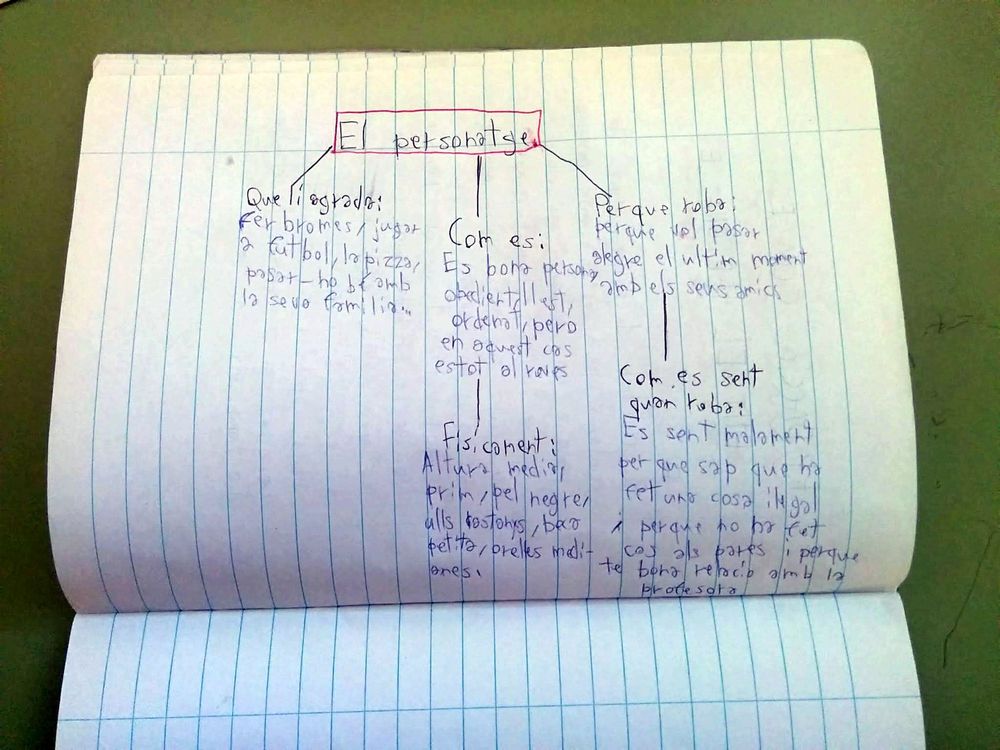 El personatge.
Que li agrada:
Fer bromes, jugar
a futbol, la pizza,
pasar-ho be amb
la seva familia...
Com es:
Es bona persona,
obedient, llest,
ordenat, pero
en aquest cas
estot al reves
Fisicament:
Altura media,
prim, pel negre,
ulls castonys,
petita, orelles medi-
anes.
Perque roba:
perque vol pasar
alegre el ultim moment
amb els seus amics
Com es sent
quan roba:
Es sent malament
per que sap que ha
fet una cosa ilegal
i perque no ha fet
cas als pares i perque
te bona relacio amb la
profesora